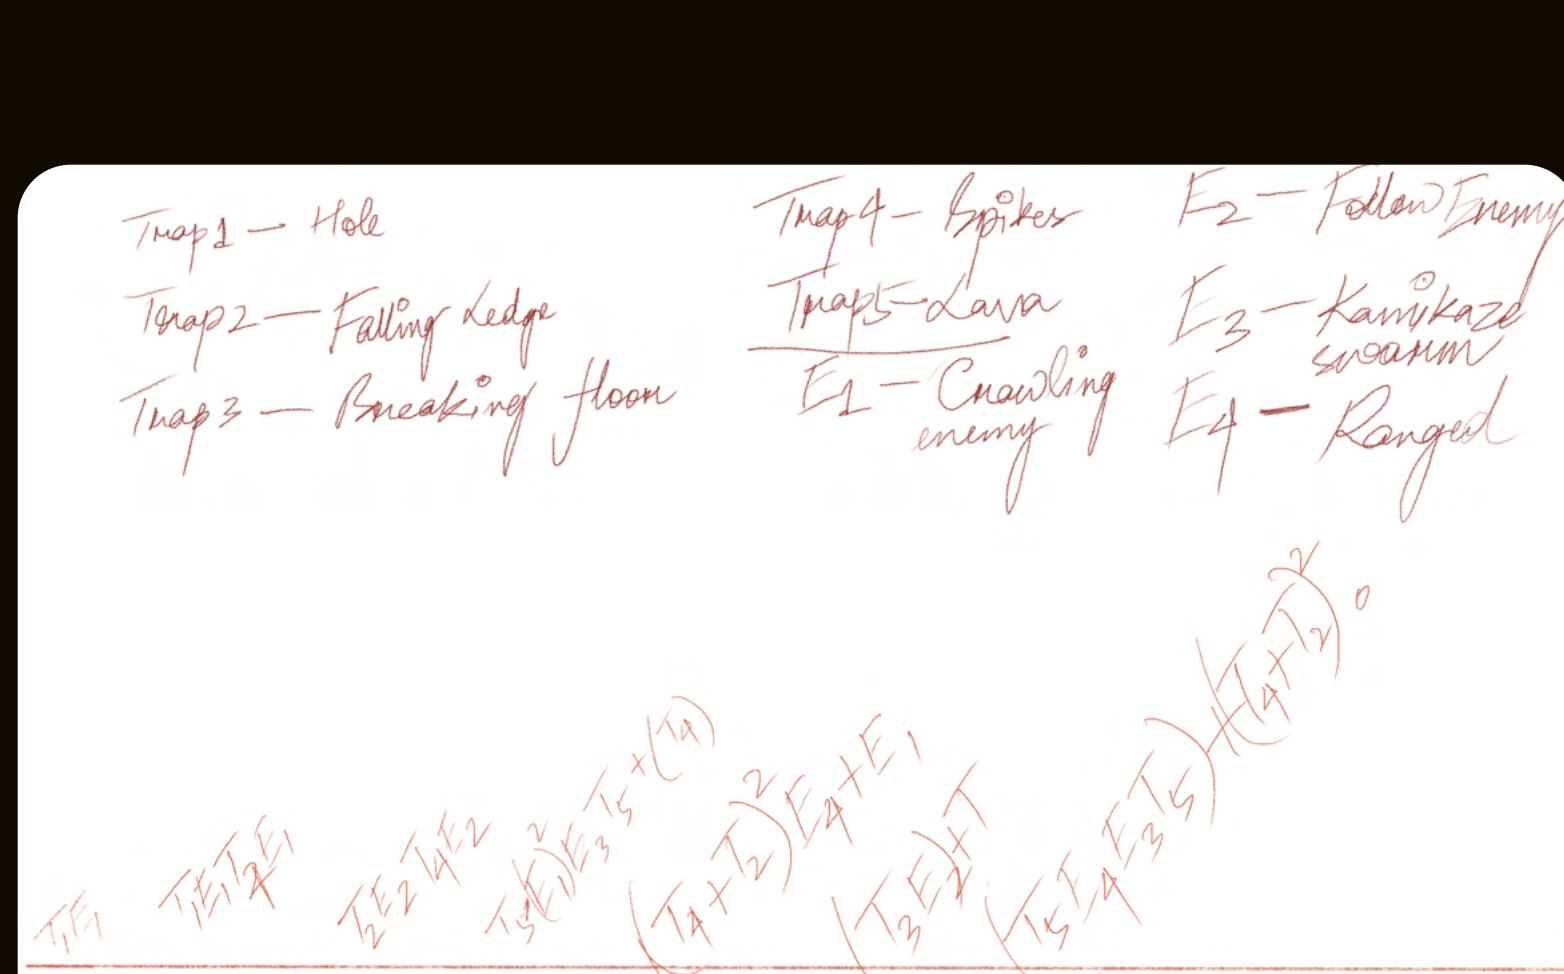 Trap1 — Hole
Trap2 — Falling Ledge
Trap3 — Breaking floor
Trap4 — Spikes
Trap5 — Lava
E1 — Crawling
enemy
E2 — Follow Enemy
E3 — Kamikaze
swarm
E4 — Ranged
T1E1
T1E1T4E1
T2E2T4E2
T5(E1)²E3T5+(T4)
(T4+T2)²E4+E1
(T3E2)+T
(T5E4E3T5)+(T4+T2)²